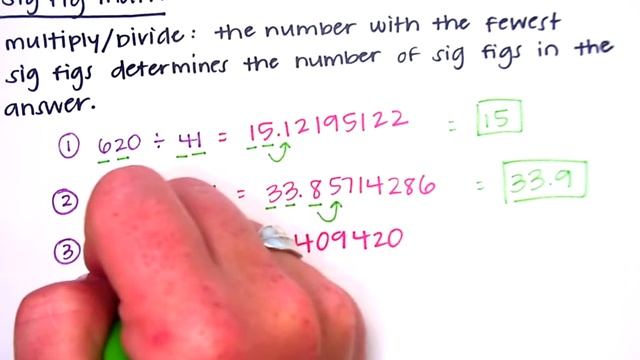 sig fig math
multiply/divide: the number with the fewest
sig figs determines the number of sig figs in the
answer.
① 620 ÷ 41 = 15.12195122 = 15
② = 33.85714286 = 33.9
③ 409420